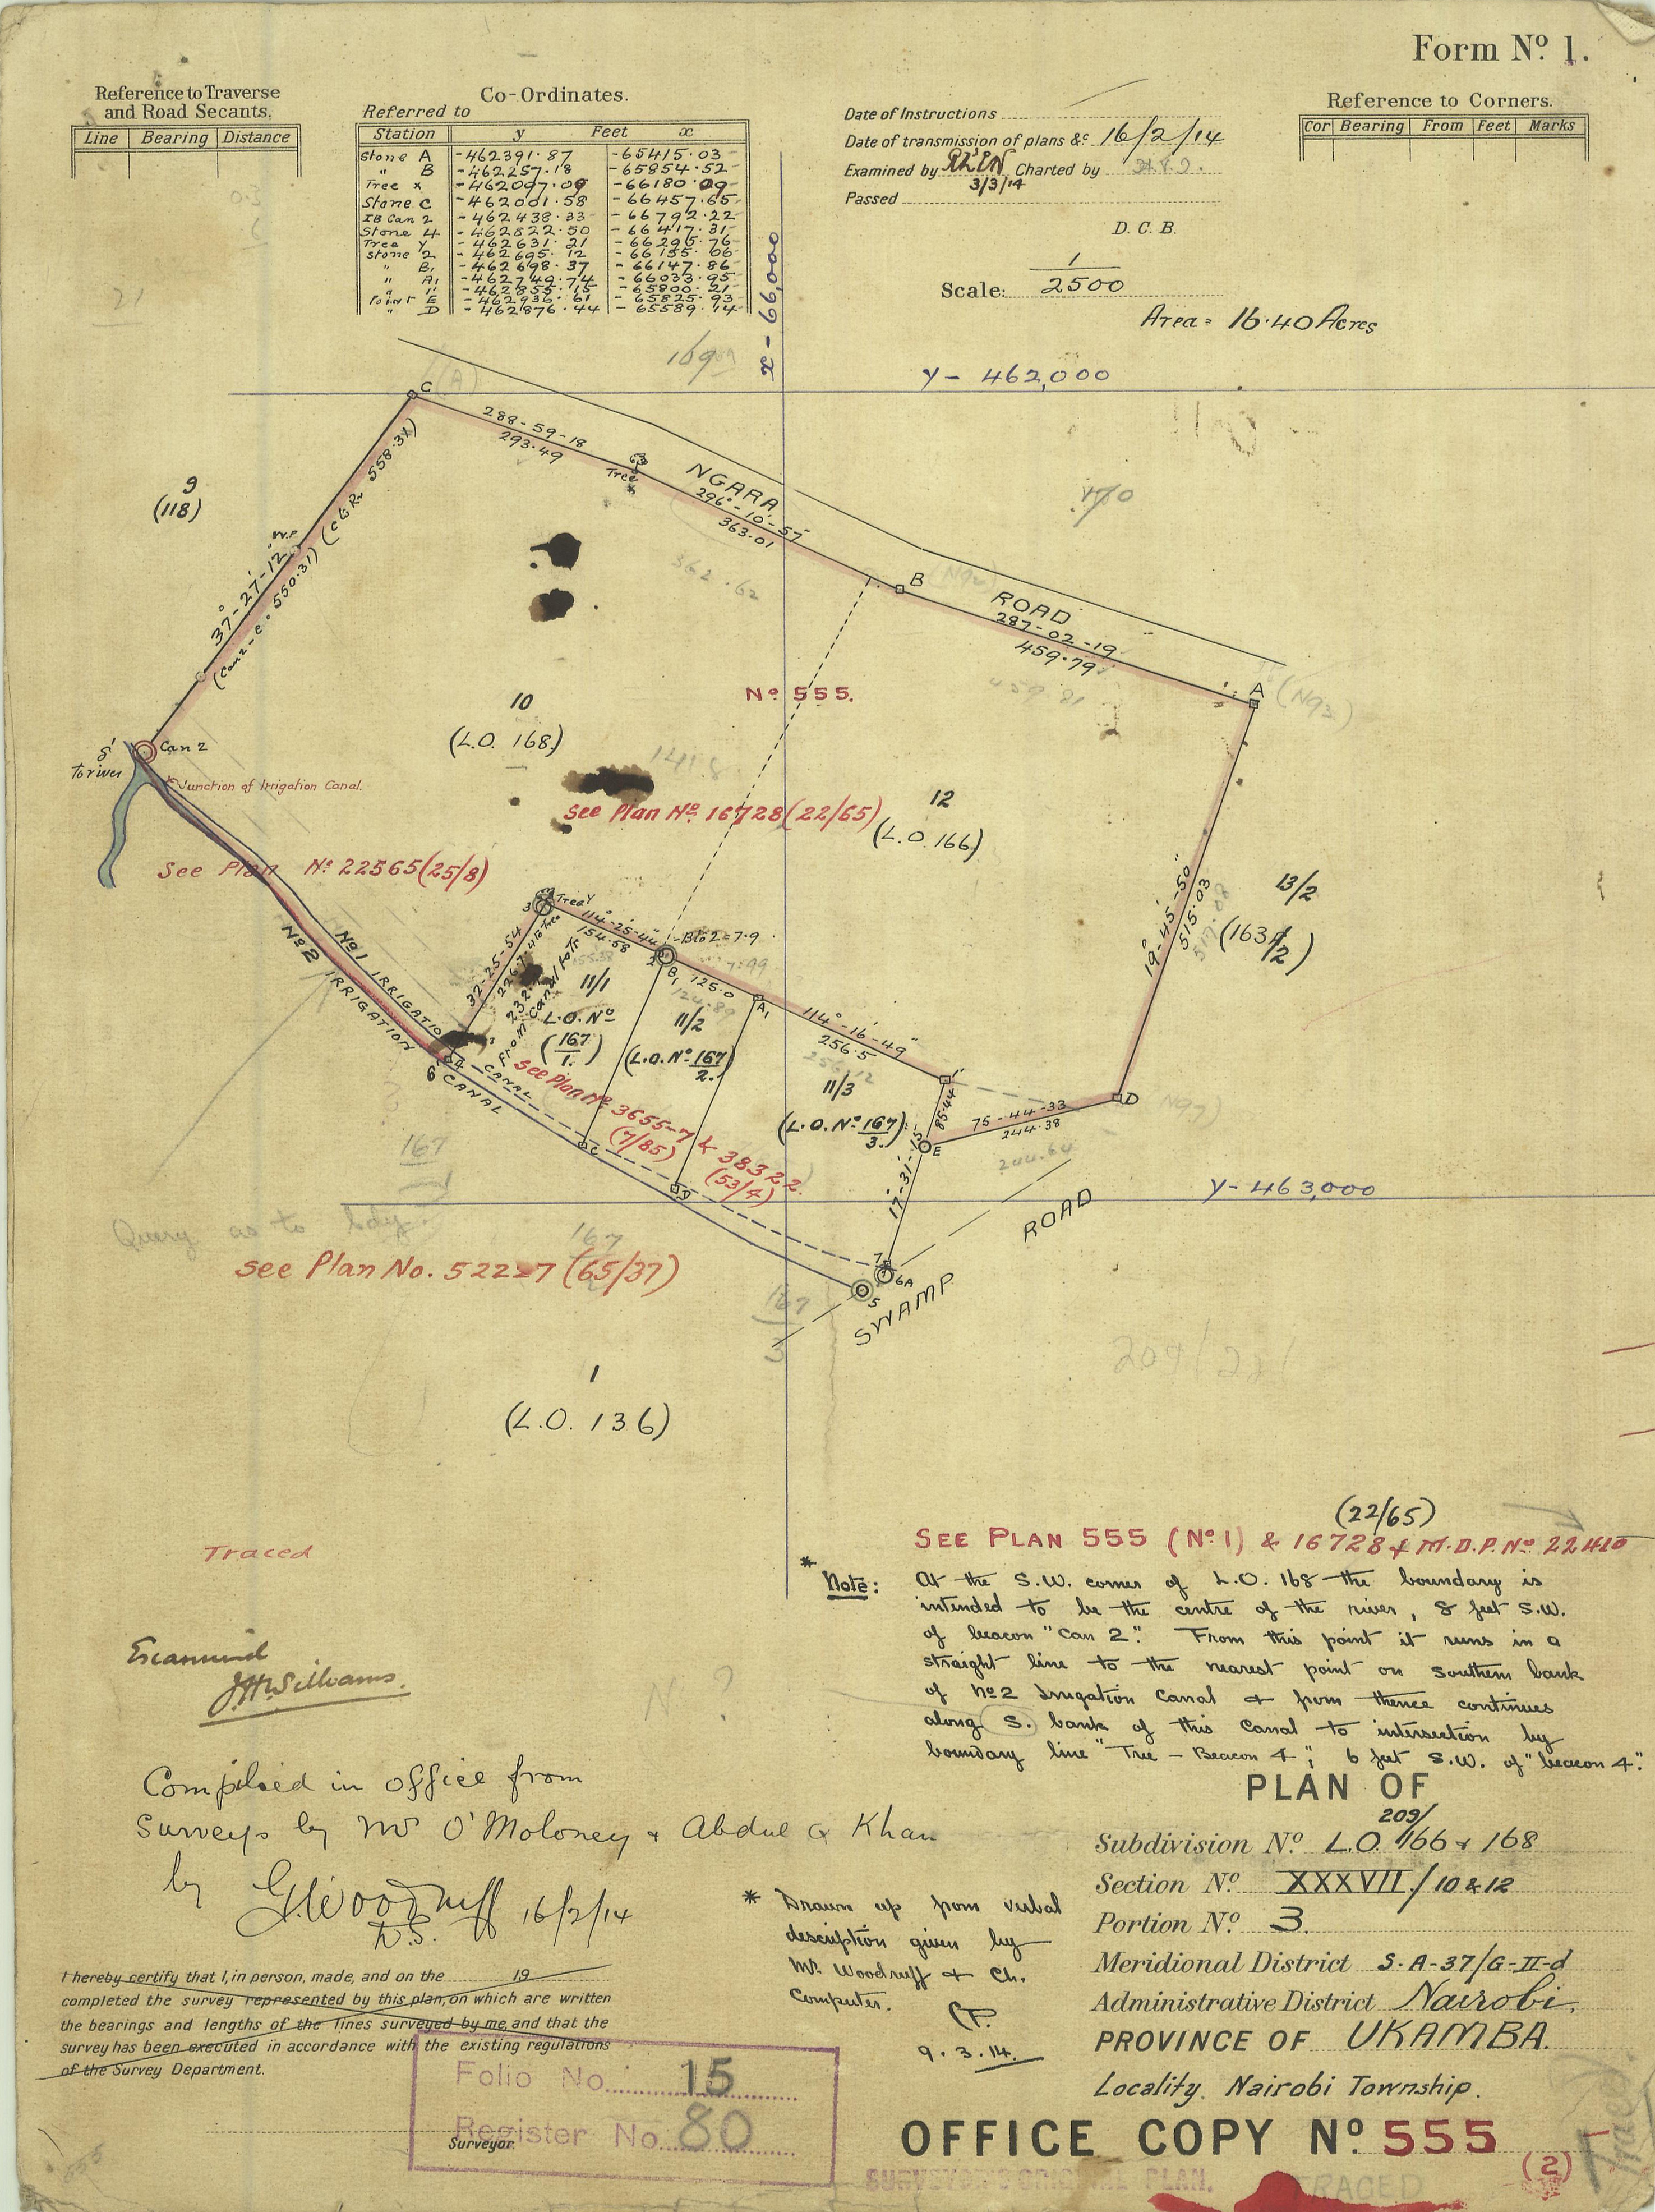 Form No. 1.
Reference to Traverse
and Road Secants.
Line Bearing Distance
Co-Ordinates.
Referred to
Station y Feet x
Stone A -462391.87 -65415.03
" B -462257.18 -65854.52
Tree x -462097.09 -66180.09
Stone C -462001.58 -66457.65
IB Can 2 -462438.33 -66792.22
Stone 4 -462822.50 -66417.31
Tree Y -462631.21 -66295.76
Stone 2 -462695.12 -66155.06
" B1 -462698.37 -66147.86
" A1 -462749.74 -66033.95
" 1' -462855.15 -65800.21
Point E -462936.61 -65825.93
" D -462876.44 -65589.14
Date of Instructions
Date of transmission of plans &c 16/2/14
Examined by Charted by
3/3/14
Passed
D. C. B.
Scale: 1/2500
Area = 16.40 Acres
Reference to Corners.
Cor Bearing From Feet Marks
x - 66,000
y - 462,000
169
C (A)
288-59-18
293.49
Tree
x
NGARA
296°-10'-57"
363.01
362.62
B (N92)
ROAD
287-02-19
459.79
459.81
A (N93)
170
9
(118)
W.P
37°-27'-12"
(Can 2-C = 550.31) (C to R. 558.31)
8'
To river
Can 2
Junction of Irrigation Canal.
10
(L.O. 168)
No 555.
1418
See Plan No. 16728 (22/65)
12
(L.O. 166)
See Plan No. 22565 (25/8)
19°-45'-50"
515.03
13/2
(163A/2)
Tree Y
3
114°-25'-44"
154.58
B to 2 = 7.9
7.99
2
B1
125.0
A1
32-25-54
From Canal to
11/1
L.O. No
(167/1.)
11/2
(L.O. No 167/2.)
114°-16'-49"
256.5
11/3
(L.O. No 167/3.)
No 1 IRRIGATION CANAL
No 2 IRRIGATION CANAL
6'
4
See Plan No. 3655-7 & 38322
(7/85) (53/4)
C
D
1'
85.44
E
75-44-33
244.38
244.64
D N97)
17°-31'-15"
y - 463,000
ROAD
7
6A
5
SWAMP
167/1
Query as to bdy.
167/2
see Plan No. 52227 (65/37)
167/3
1
(L.O. 136)
Traced
(22/65)
SEE PLAN 555 (No 1) & 16728 & M.D.P. No 22410
* Note: At the S.W. corner of L.O. 168 the boundary is
intended to be the centre of the river, 8 feet S.W.
of beacon "Can 2". From this point it runs in a
straight line to the nearest point on southern bank
of No 2 Irrigation Canal & from thence continues
along S. bank of this Canal to intersection by
boundary line "Tree – Beacon 4"; 6 feet S.W. of "beacon 4".
Examined
J.H. Williams.
Compiled in office from
Surveys by Mr O'Moloney & Abdul G Khan
by G. Woodruff 16/2/14
D.S.
I hereby certify that I, in person, made, and on the 19
completed the survey represented by this plan, on which are written
the bearings and lengths of the lines surveyed by me, and that the
survey has been executed in accordance with the existing regulations
of the Survey Department.
Surveyor.
Folio No. 15
Register No. 80
* Drawn up from verbal
description given by
Mr. Woodruff & Ch.
Computer.
9.3.14.
PLAN OF
209/
Subdivision No. L.O. 166 & 168
Section No. XXXVII / 10 & 12
Portion No. 3.
Meridional District S.A-37/G-II-d
Administrative District Nairobi.
PROVINCE OF UKAMBA.
Locality. Nairobi Township.
OFFICE COPY No. 555
(2)
SURVEYOR'S ORIGINAL PLAN.
TRACED
Traced.